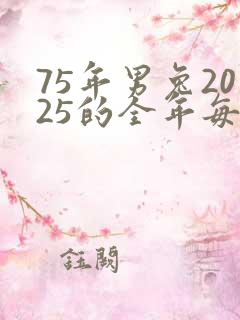 75年男兔20
25的全年每
钰阙